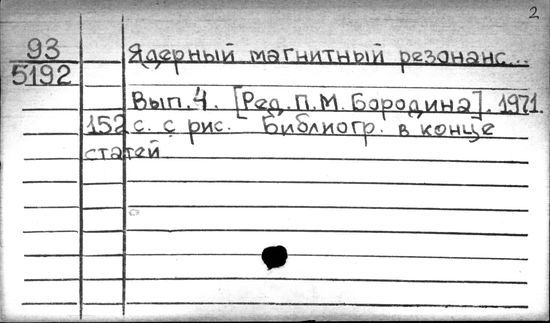 2
93 Ядерный магнитный резонанс...
5192
Вып. 4. [Ред. П.М. Бородина]. 1971.
152 с. с рис. Библиогр. в конце
статей